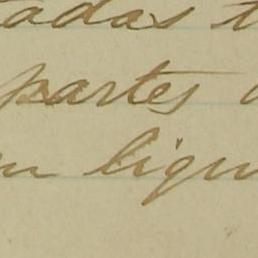 adas t
partes
m liqui